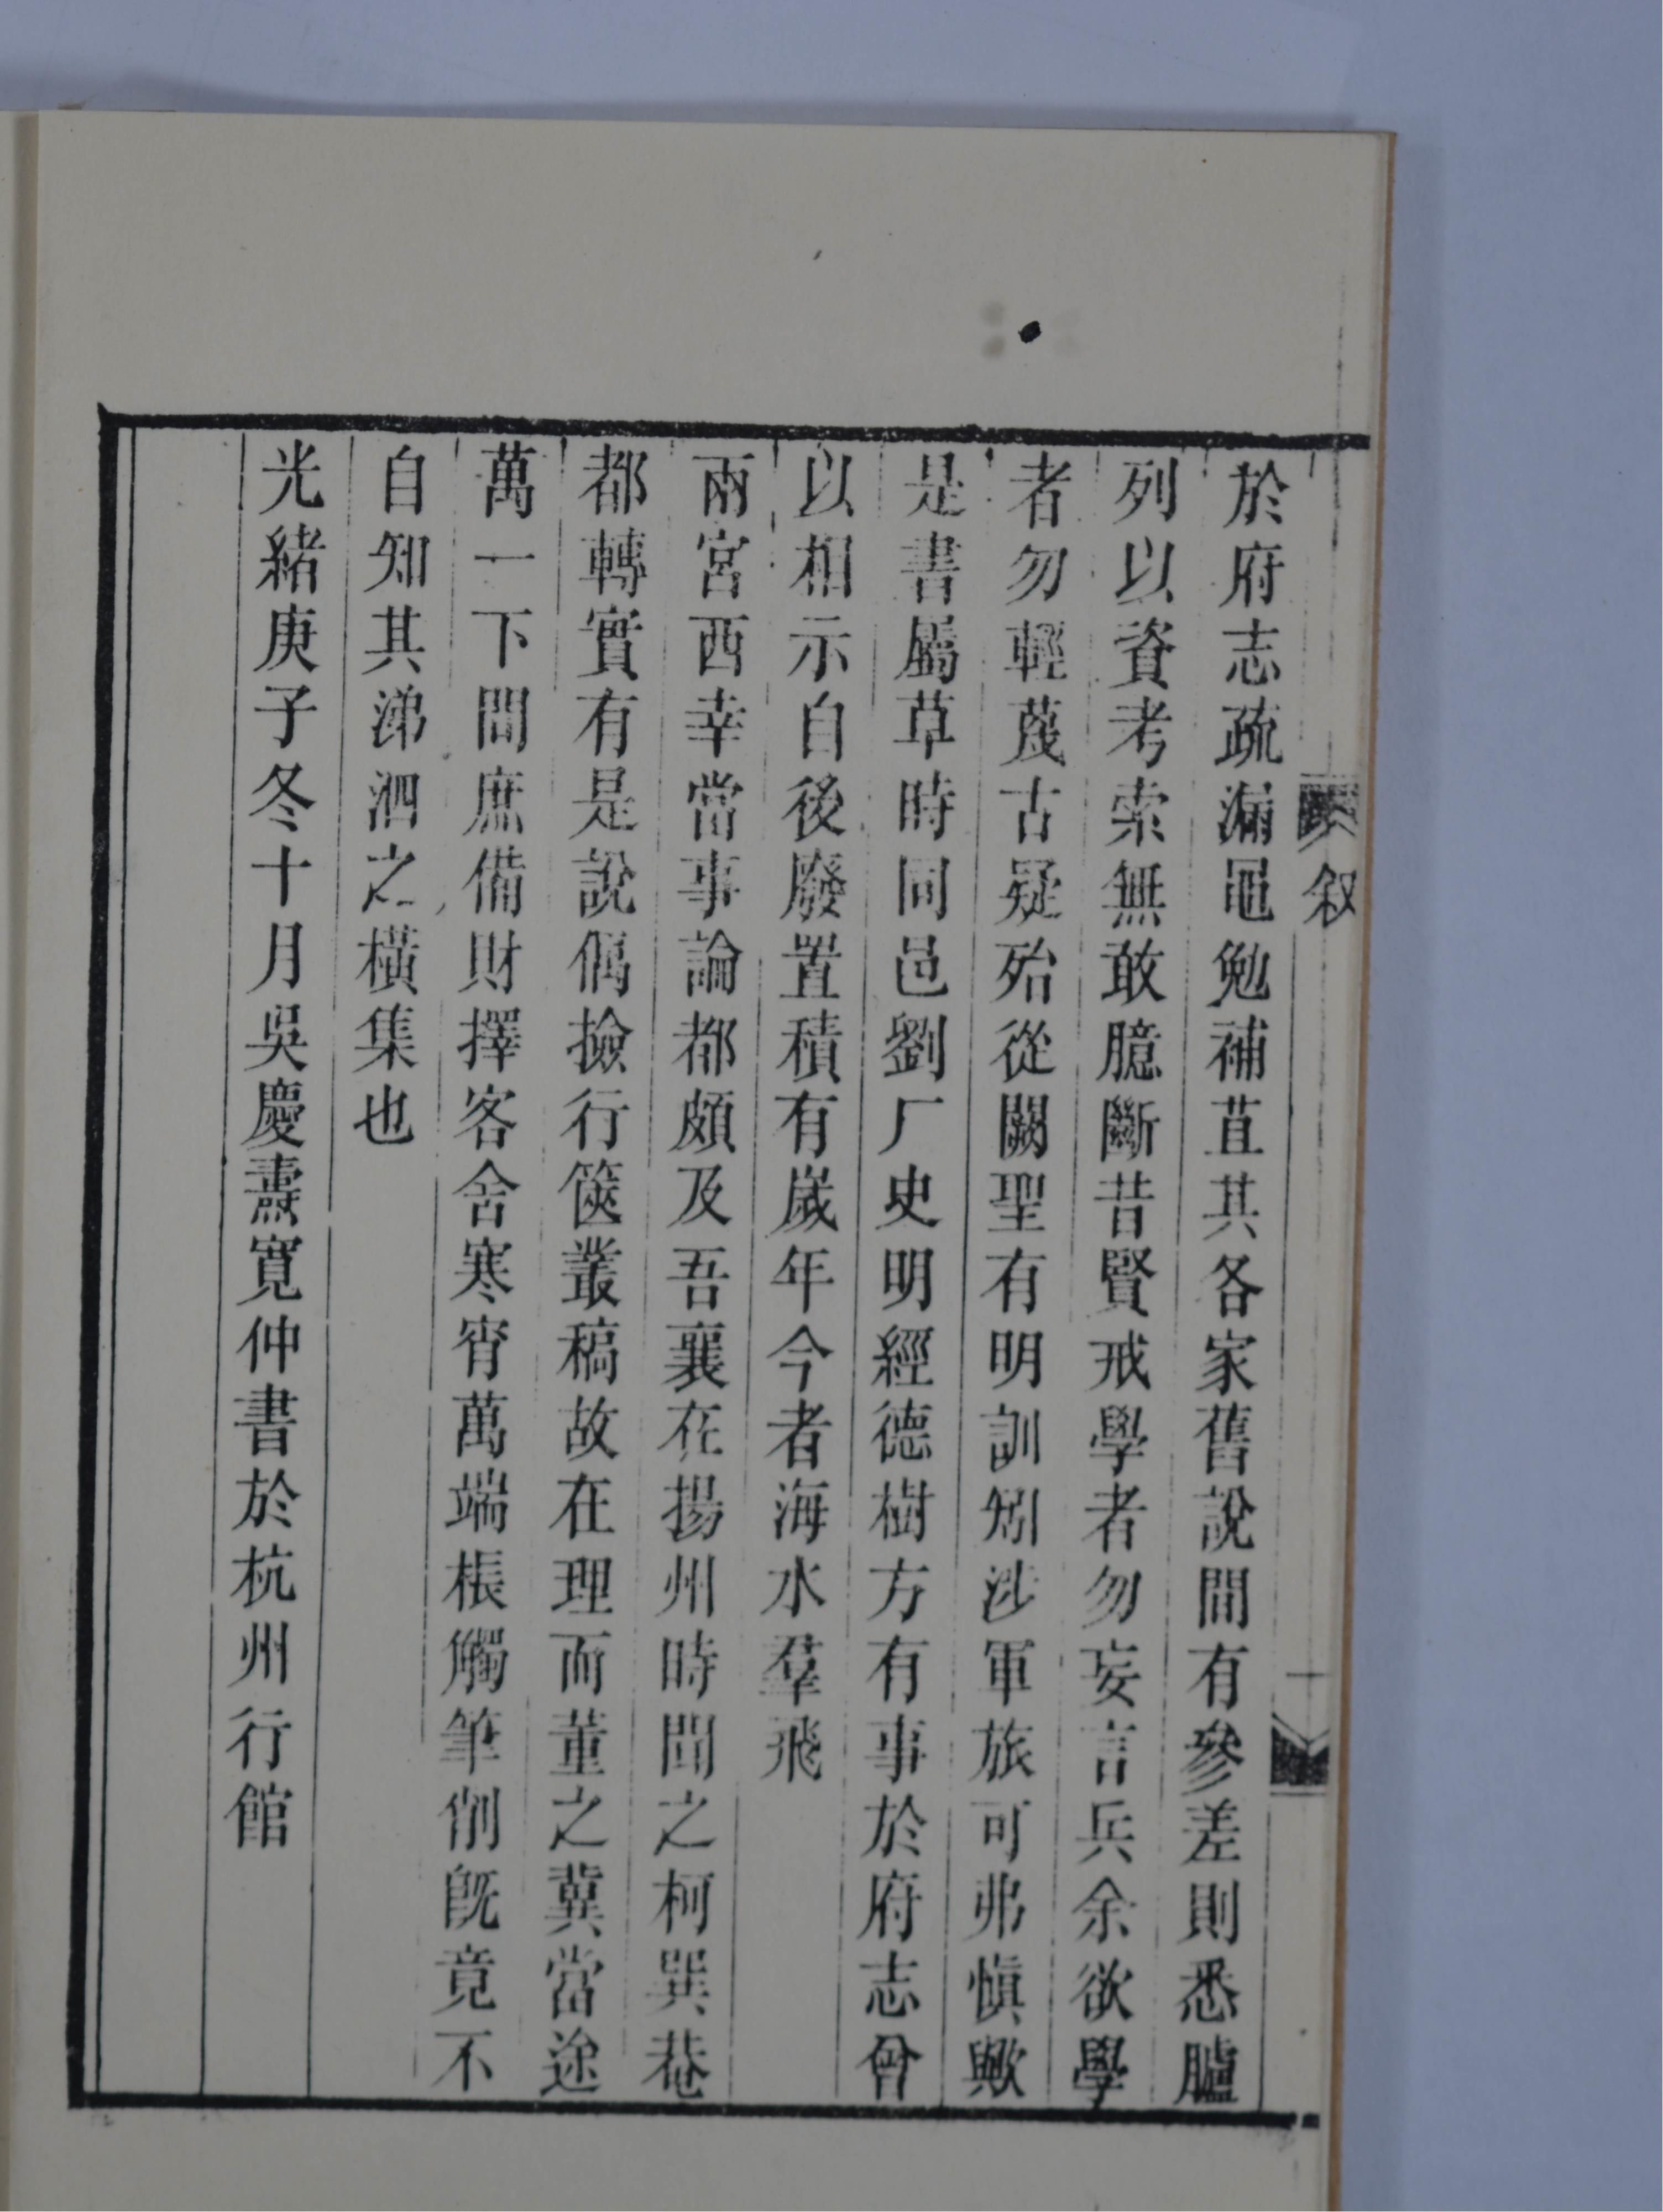 叙
一
於府志疏漏黽勉補苴其各家舊說間有參差則悉臚
列以資考索無敢臆斷昔賢戒學者勿妄言兵余欲學
者勿輕蔑古疑殆從闕聖有明訓矧涉軍旅可弗慎歟
是書屬草時同邑劉厂史明經德樹方有事於府志曾
以相示自後廢置積有歲年今者海水羣飛
兩宮西幸當事論都頗及吾襄在揚州時聞之柯巽菴
都轉實有是說偶撿行篋叢稿故在理而董之冀當途
萬一下問庶備財擇客舍寒宵萬端棖觸筆削旣竟不
自知其涕泗之橫集也
光緒庚子冬十月吳慶燾寬仲書於杭州行館